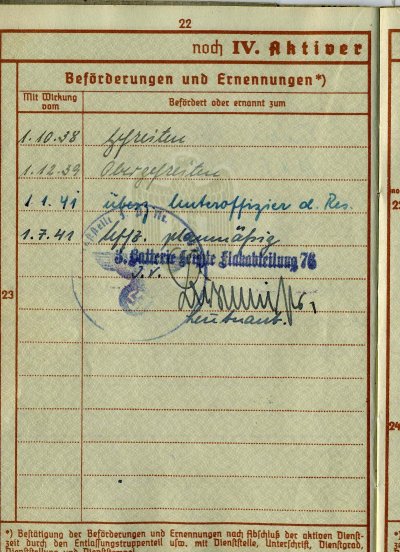 22
noch IV. Aktiver
Beförderungen und Ernennungen*)
Mit Wirkung vom
Befördert oder ernannt zum
1.10.38 Gefreiten
1.12.39 Obergefreiten
1.1.41 überz. Unteroffizier d. Res.
1.7.41 Uffz. planmäßig
3. Batterie Leichte Flakabteilung 76
J.V.
Leutnant.
23
24
*) Bestätigung der Beförderungen und Ernennungen nach Abschluß der aktiven Dienst-
zeit durch den Entlassungstruppenteil usw. mit Dienststelle, Unterschrift, Dienstgrad,